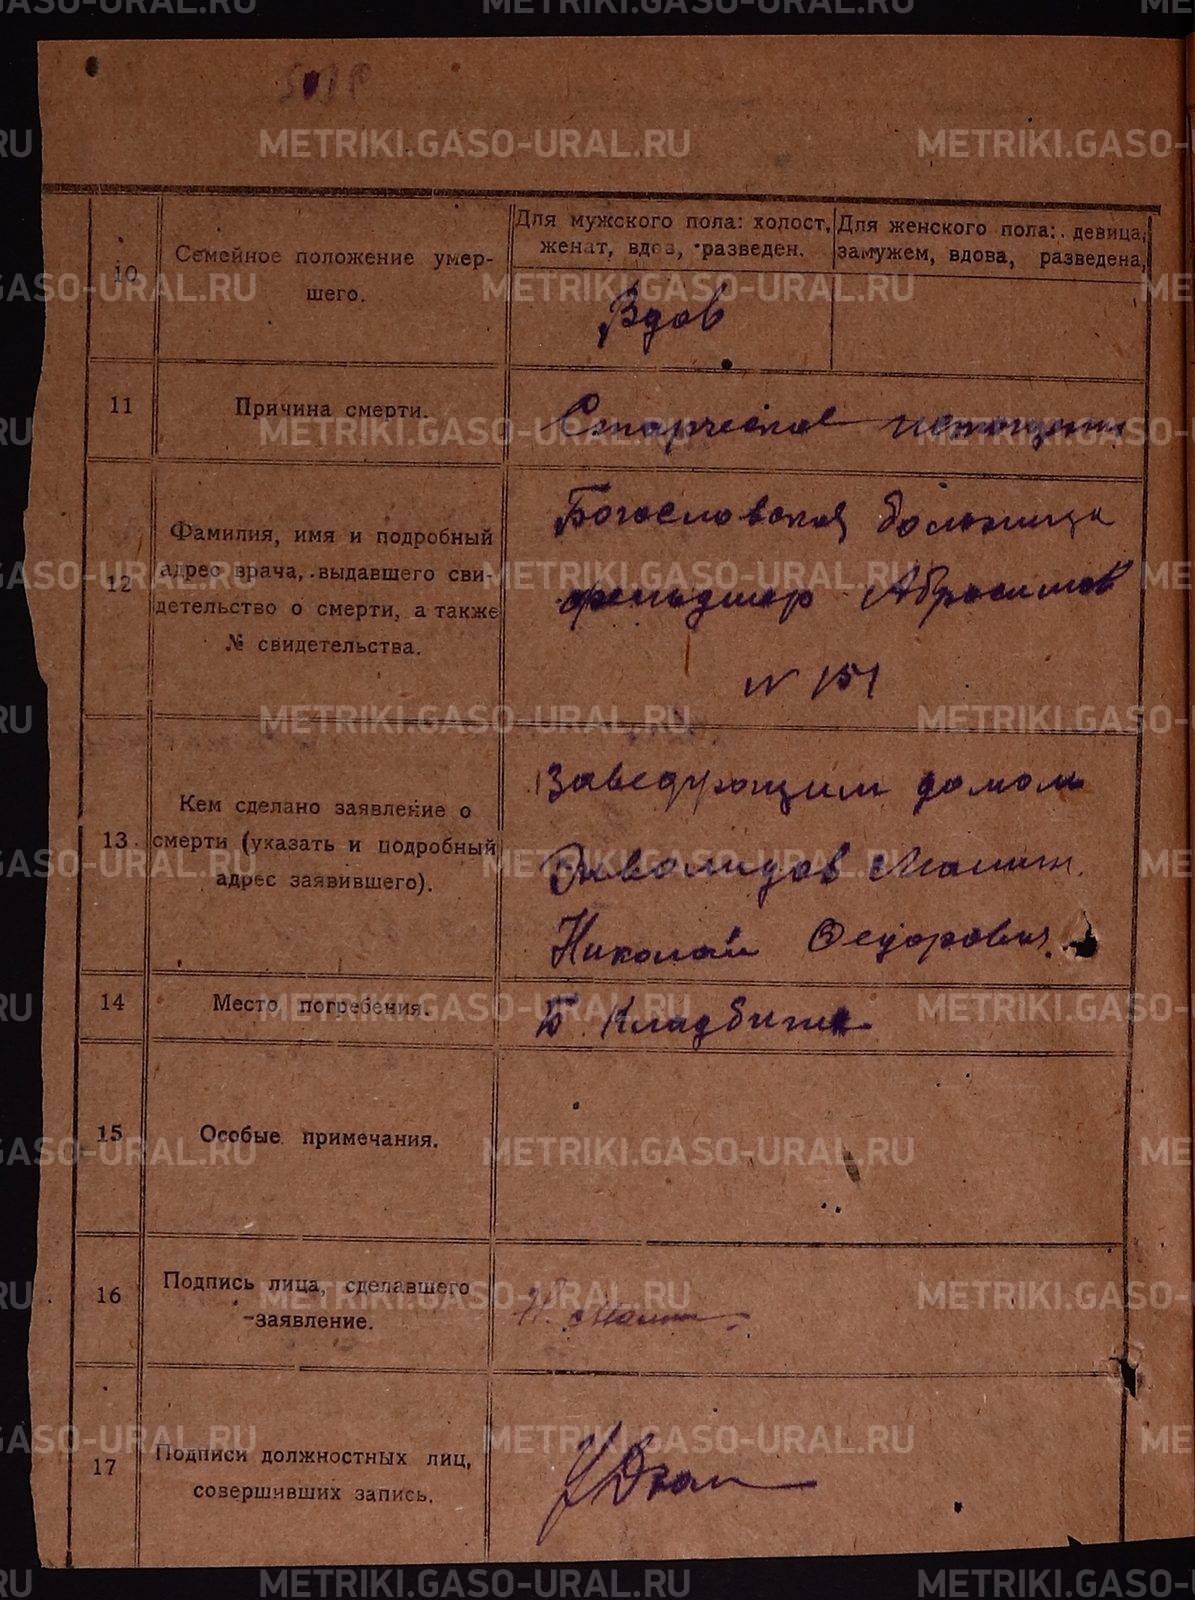 10
Семейное положение умер-
шего.
Для мужского пола: холост,
женат, вдов, разведен.
Для женского пола: девица,
замужем, вдова, разведена,
Вдов
11
Причина смерти.
Старческое истощение
12
Фамилия, имя и подробный
адрес врача, выдавшего сви-
детельство о смерти, а также
№ свидетельства.
Богословская больница
фельдшер Абросимов
N 151
13
Кем сделано заявление о
смерти (указать и подробный
адрес заявившего).
Заведующим домом
Инвалидов Малин
Николай Федорович.
14
Место погребения.
Б. Кладбище
15
Особые примечания.
16
Подпись лица, сделавшего
заявление.
Н. Малин
17
Подписи должностных лиц,
совершивших запись.
METRIKI.GASO-URAL.RU